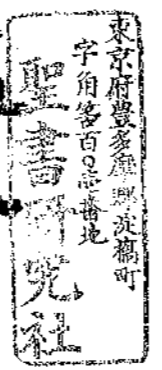 東京府豊多摩郡淀橋町
字角筈百〇壱番地
聖書研究社